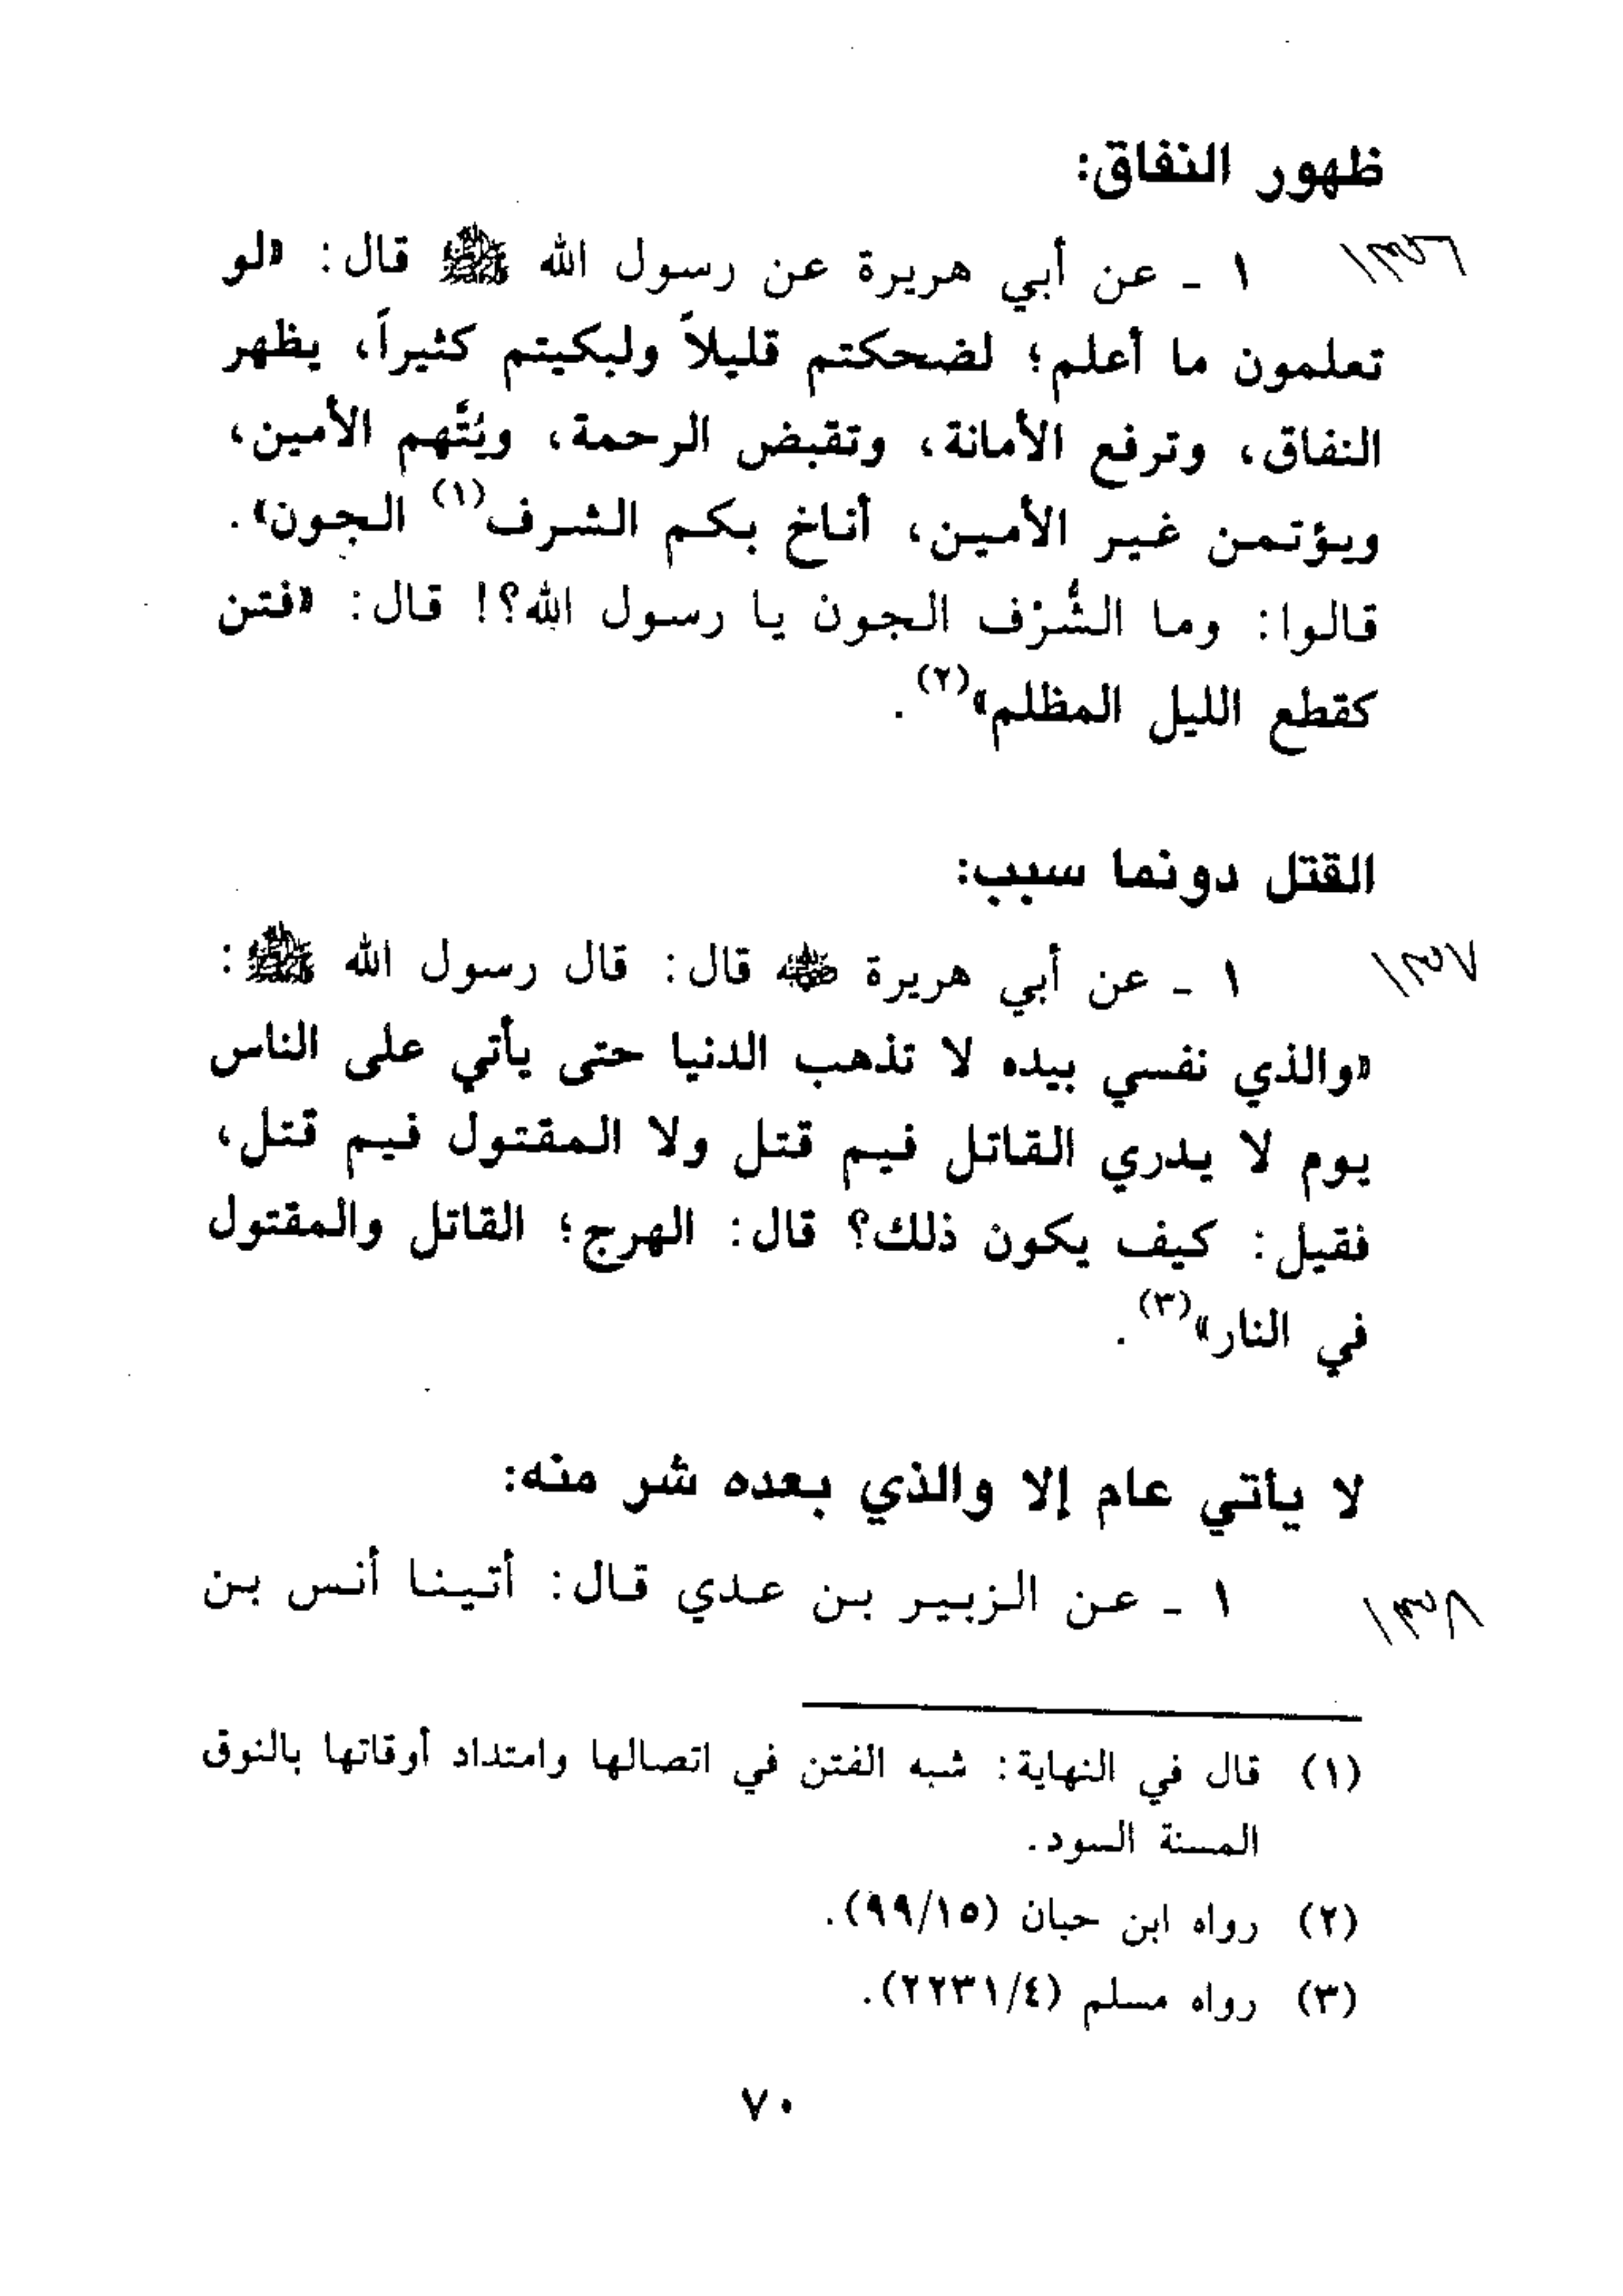 ظهور النفاق:
١ - عن أبي هريرة عن رسول الله ﷺ قال: «لو
تعلمون ما أعلم؛ لضحكتم قليلاً ولبكيتم كثيراً، يظهر
النفاق، وترفع الأمانة، وتقبض الرحمة، ويُتَّهم الأمين،
ويؤتمن غير الأمين، أناخ بكم الشرف(١) الجون».
قالوا: وما الشُّرْف الجون يا رسول الله؟! قال: «فتن
كقطع الليل المظلم»(٢).
القتل دونما سبب:
١ - عن أبي هريرة رضي الله عنه قال: قال رسول الله ﷺ:
«والذي نفسي بيده لا تذهب الدنيا حتى يأتي على الناس
يوم لا يدري القاتل فيم قتل ولا المقتول فيم قتل،
فقيل: كيف يكون ذلك؟ قال: الهرج؛ القاتل والمقتول
في النار»(٣).
لا يأتي عام إلا والذي بعده شر منه:
١ - عن الزبير بن عدي قال: أتينا أنس بن
(١) قال في النهاية: شبه الفتن في اتصالها وامتداد أوقاتها بالنوق
المسنة السود.
(٢) رواه ابن حبان (٩٩/١٥).
(٣) رواه مسلم (٢٢٣١/٤).
٧٠